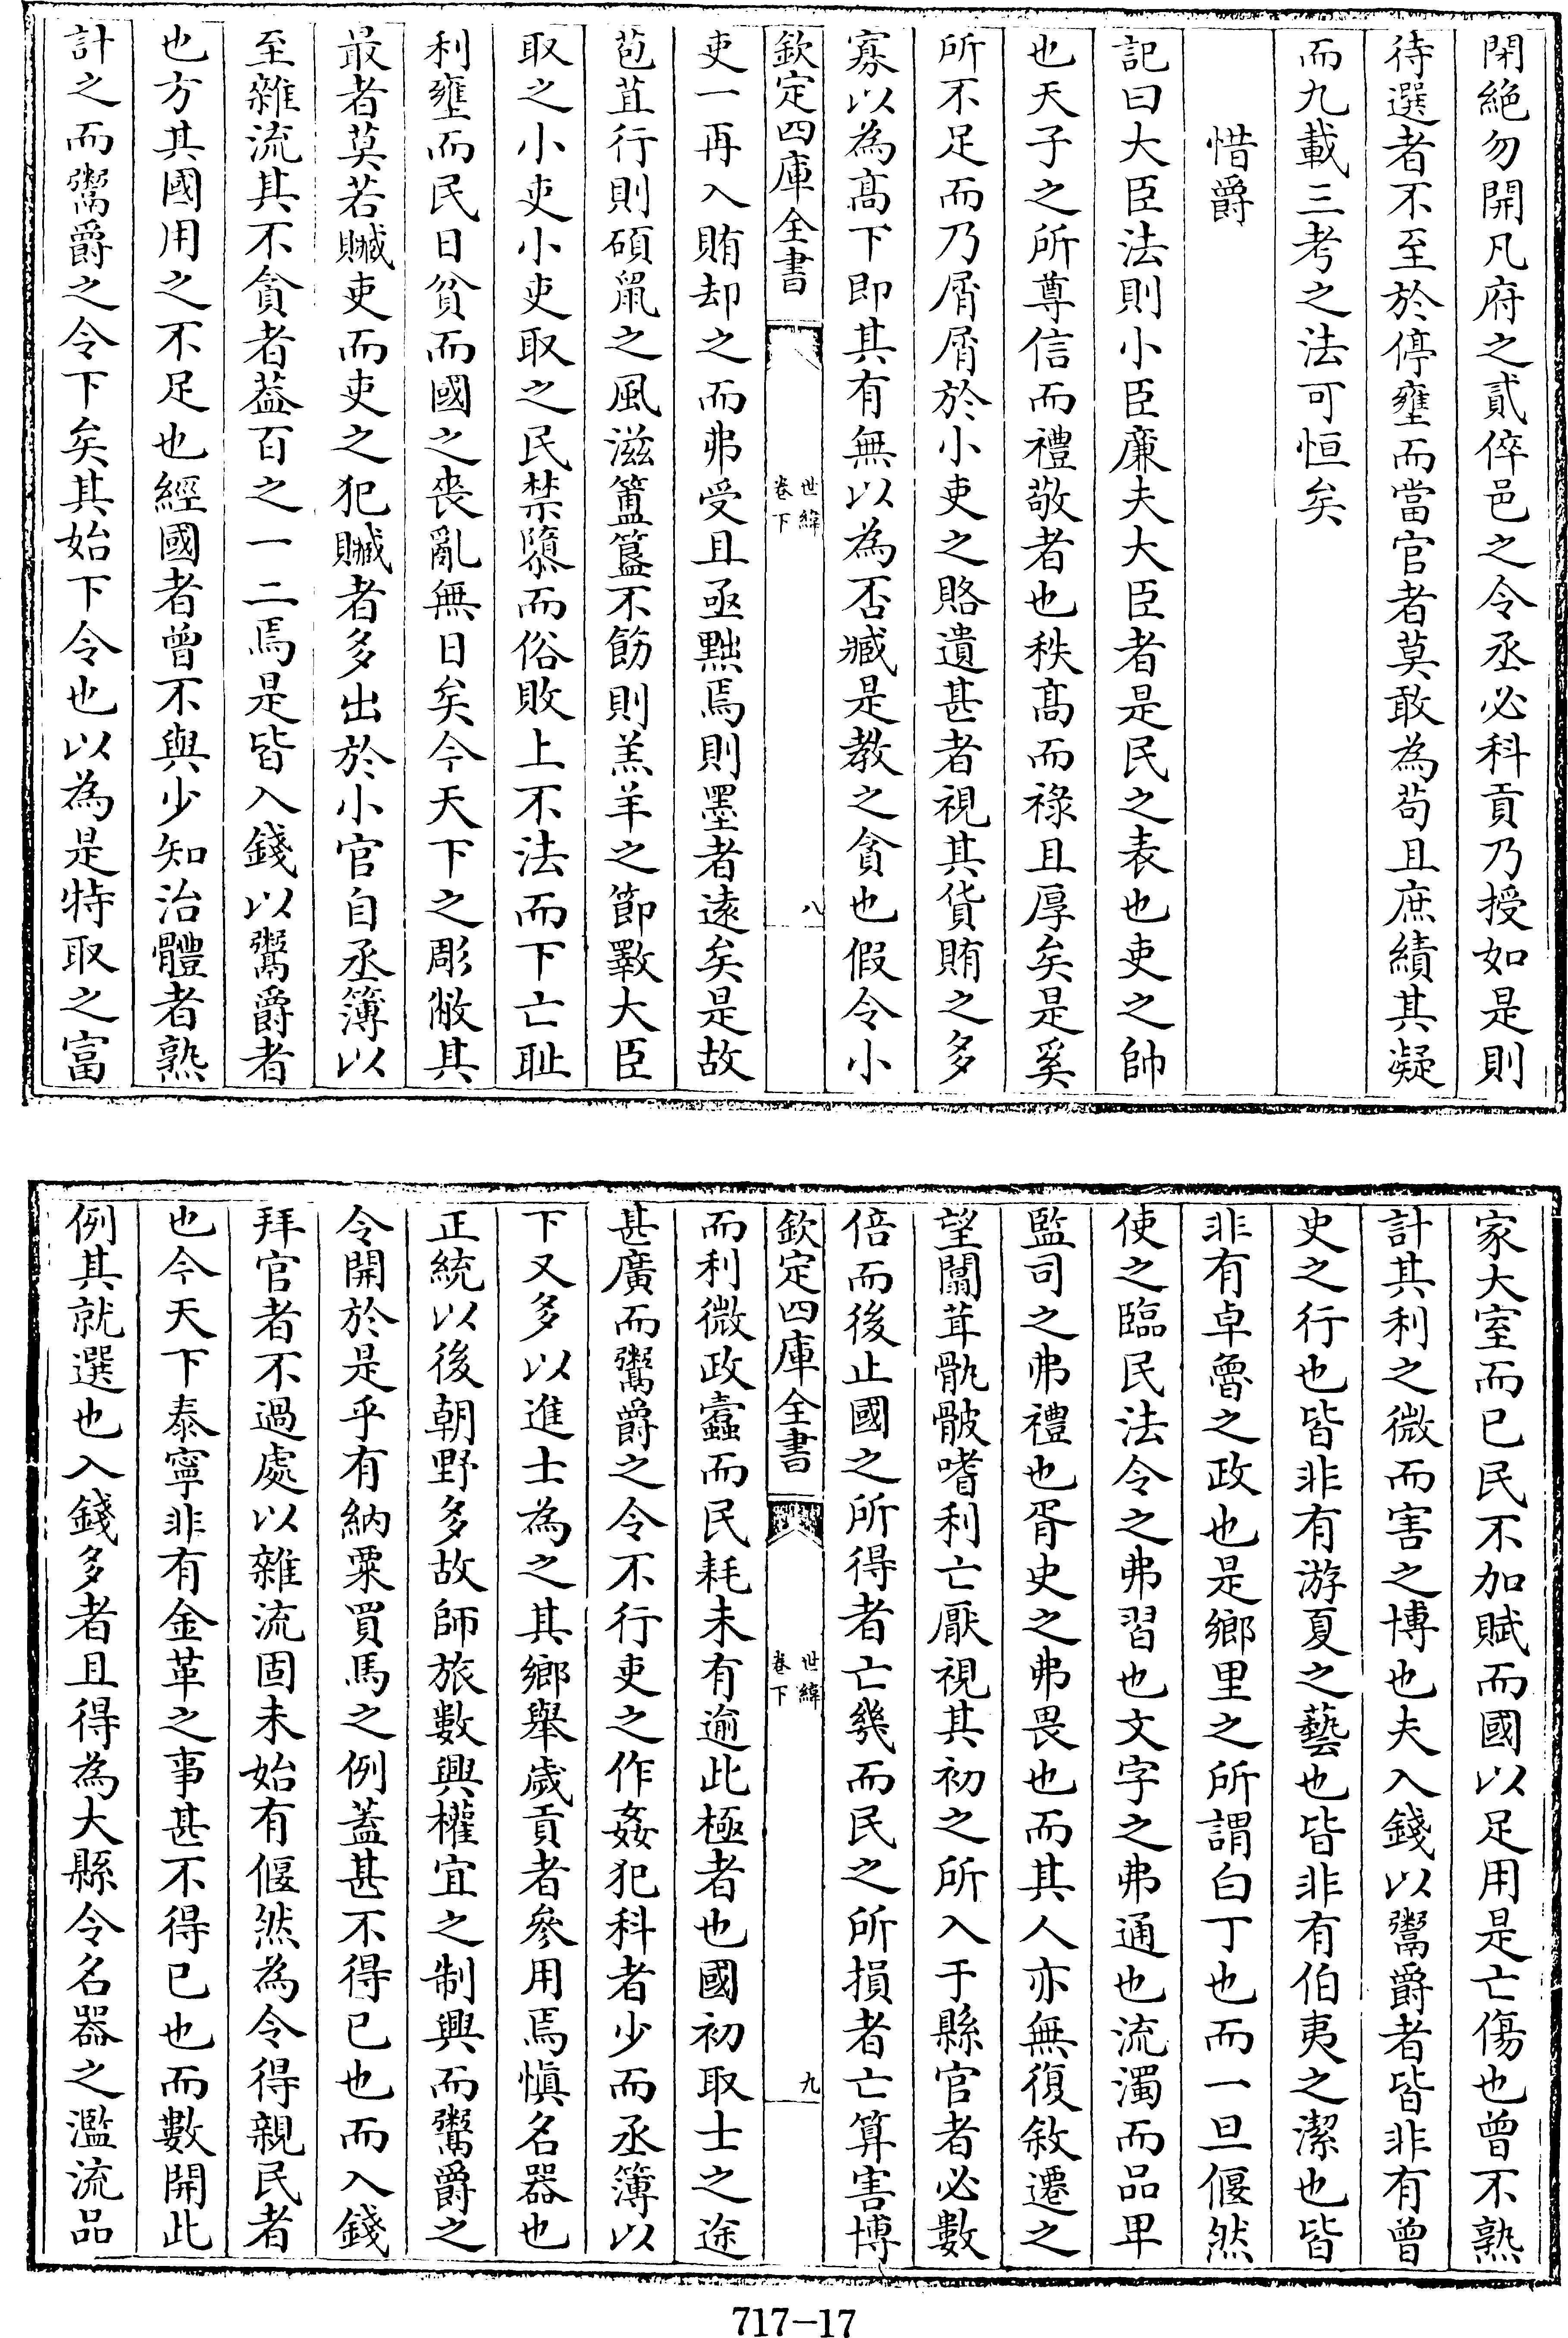 閉絶勿開凡府之貳倅邑之令丞必科貢乃授如是則
待選者不至於停壅而當官者莫敢為苟且庶績其凝
而九載三考之法可恒矣
惜爵
記曰大臣法則小臣廉夫大臣者是民之表也吏之帥
也天子之所尊信而禮敬者也秩髙而祿且厚矣是奚
所不足而乃屑屑於小吏之賂遺甚者視其貨賄之多
寡以為髙下即其有無以為否臧是教之貪也假令小
欽定四庫全書
世緯
卷下
八
吏一再入賄却之而弗受且亟黜焉則墨者遠矣是故
苞苴行則碩鼠之風滋簠簋不飭則羔羊之節斁大臣
取之小吏小吏取之民禁隳而俗敗上不法而下亡耻
利壅而民日貧而國之喪亂無日矣今天下之彫敝其
最者莫若贓吏而吏之犯贓者多出於小官自丞簿以
至雜流其不貪者葢百之一二焉是皆入錢以鬻爵者
也方其國用之不足也經國者曾不與少知治體者熟
計之而鬻爵之令下矣其始下令也以為是特取之富
家大室而已民不加賦而國以足用是亡傷也曾不熟
計其利之微而害之博也夫入錢以鬻爵者皆非有曾
史之行也皆非有游夏之藝也皆非有伯夷之潔也皆
非有卓魯之政也是鄉里之所謂白丁也而一旦偃然
使之臨民法令之弗習也文字之弗通也流濁而品卑
監司之弗禮也胥史之弗畏也而其人亦無復敘遷之
望闒茸骫骳嗜利亡厭視其初之所入于縣官者必數
倍而後止國之所得者亡幾而民之所損者亡算害博
欽定四庫全書
世緯
卷下
九
而利微政蠧而民耗未有逾此極者也國初取士之途
甚廣而鬻爵之令不行吏之作姦犯科者少而丞簿以
下又多以進士為之其鄉舉歲貢者參用焉慎名器也
正統以後朝野多故師旅數興權宜之制興而鬻爵之
令開於是乎有納粟買馬之例蓋甚不得已也而入錢
拜官者不過處以雜流固未始有偃然為令得親民者
也今天下泰寧非有金革之事甚不得已也而數開此
例其就選也入錢多者且得為大縣令名器之濫流品
717-17